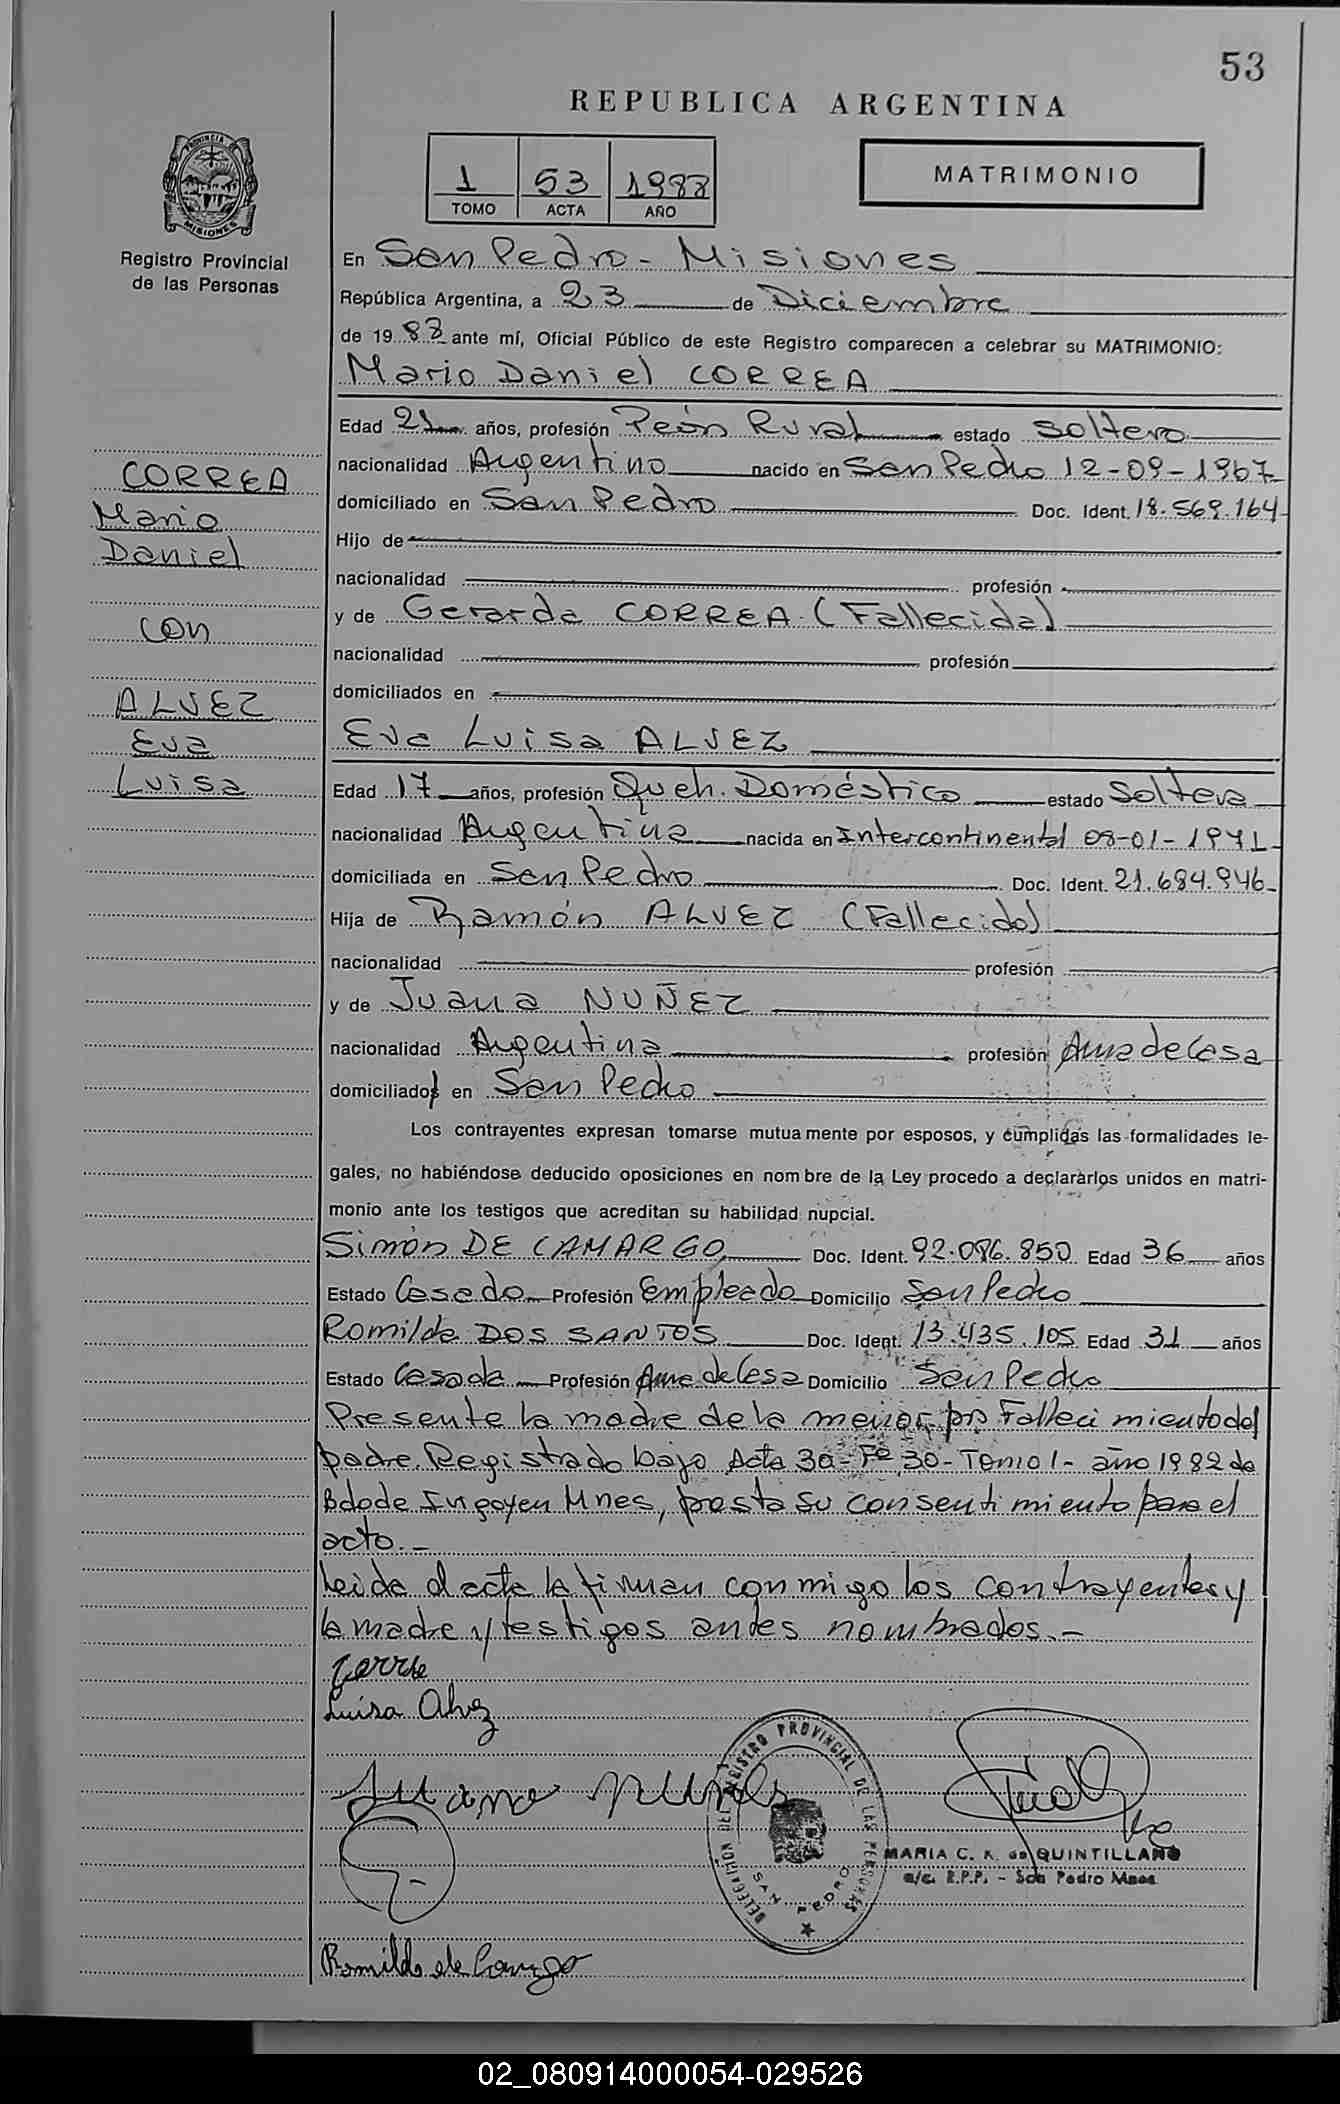 53
REPUBLICA ARGENTINA
1 53 1988
TOMO ACTA AÑO
MATRIMONIO
PROVINCIA DE MISIONES
Registro Provincial
de las Personas
En San Pedro - Misiones
República Argentina, a 23 de Diciembre
de 1988 ante mí, Oficial Público de este Registro comparecen a celebrar su MATRIMONIO:
Mario Daniel CORREA
Edad 21 años, profesión Peón Rural estado Soltero
nacionalidad Argentino nacido en San Pedro 12-09-1967
domiciliado en San Pedro Doc. Ident. 18.569.164
Hijo de
nacionalidad profesión
y de Gerarda CORREA (Fallecida)
nacionalidad profesión
domiciliados en
CORREA
Mario
Daniel
con
ALVEZ
Eva
Luisa
Eva Luisa ALVEZ
Edad 17 años, profesión Queh. Doméstico estado Soltera
nacionalidad Argentina nacida en Intercontinental 08-01-1971
domiciliada en San Pedro Doc. Ident. 21.684.946
Hija de Ramón ALVEZ (Fallecido)
nacionalidad profesión
y de Juana NUÑEZ
nacionalidad Argentina profesión Ama de Casa
domiciliados en San Pedro
Los contrayentes expresan tomarse mutuamente por esposos, y cumplidas las formalidades le-
gales, no habiéndose deducido oposiciones en nombre de la Ley procedo a declararlos unidos en matri-
monio ante los testigos que acreditan su habilidad nupcial.
Simón DE CAMARGO Doc. Ident. 92.086.850 Edad 36 años
Estado Casado Profesión Empleado Domicilio San Pedro
Romilda DOS SANTOS Doc. Ident. 13.435.105 Edad 31 años
Estado Casada Profesión Ama de Casa Domicilio San Pedro
Presente la madre de la menor, por Fallecimiento del
padre. Registrado bajo Acta 30 - Fº 30 - Tomo 1 - año 1982 de
Bdo de Irigoyen Mnes, presta su consentimiento para el
acto.-
Leida el acta la firman conmigo los contrayentes y
la madre y testigos antes nombrados.-
Luisa Alvez
Juana Nunes
DELEGACION DEL REGISTRO PROVINCIAL DE LAS PERSONAS
SAN PEDRO
MARIA C. K. de QUINTILLANO
a/c. R.P.P. - San Pedro Mnes.
Romilda de Camargo
02_080914000054-029526